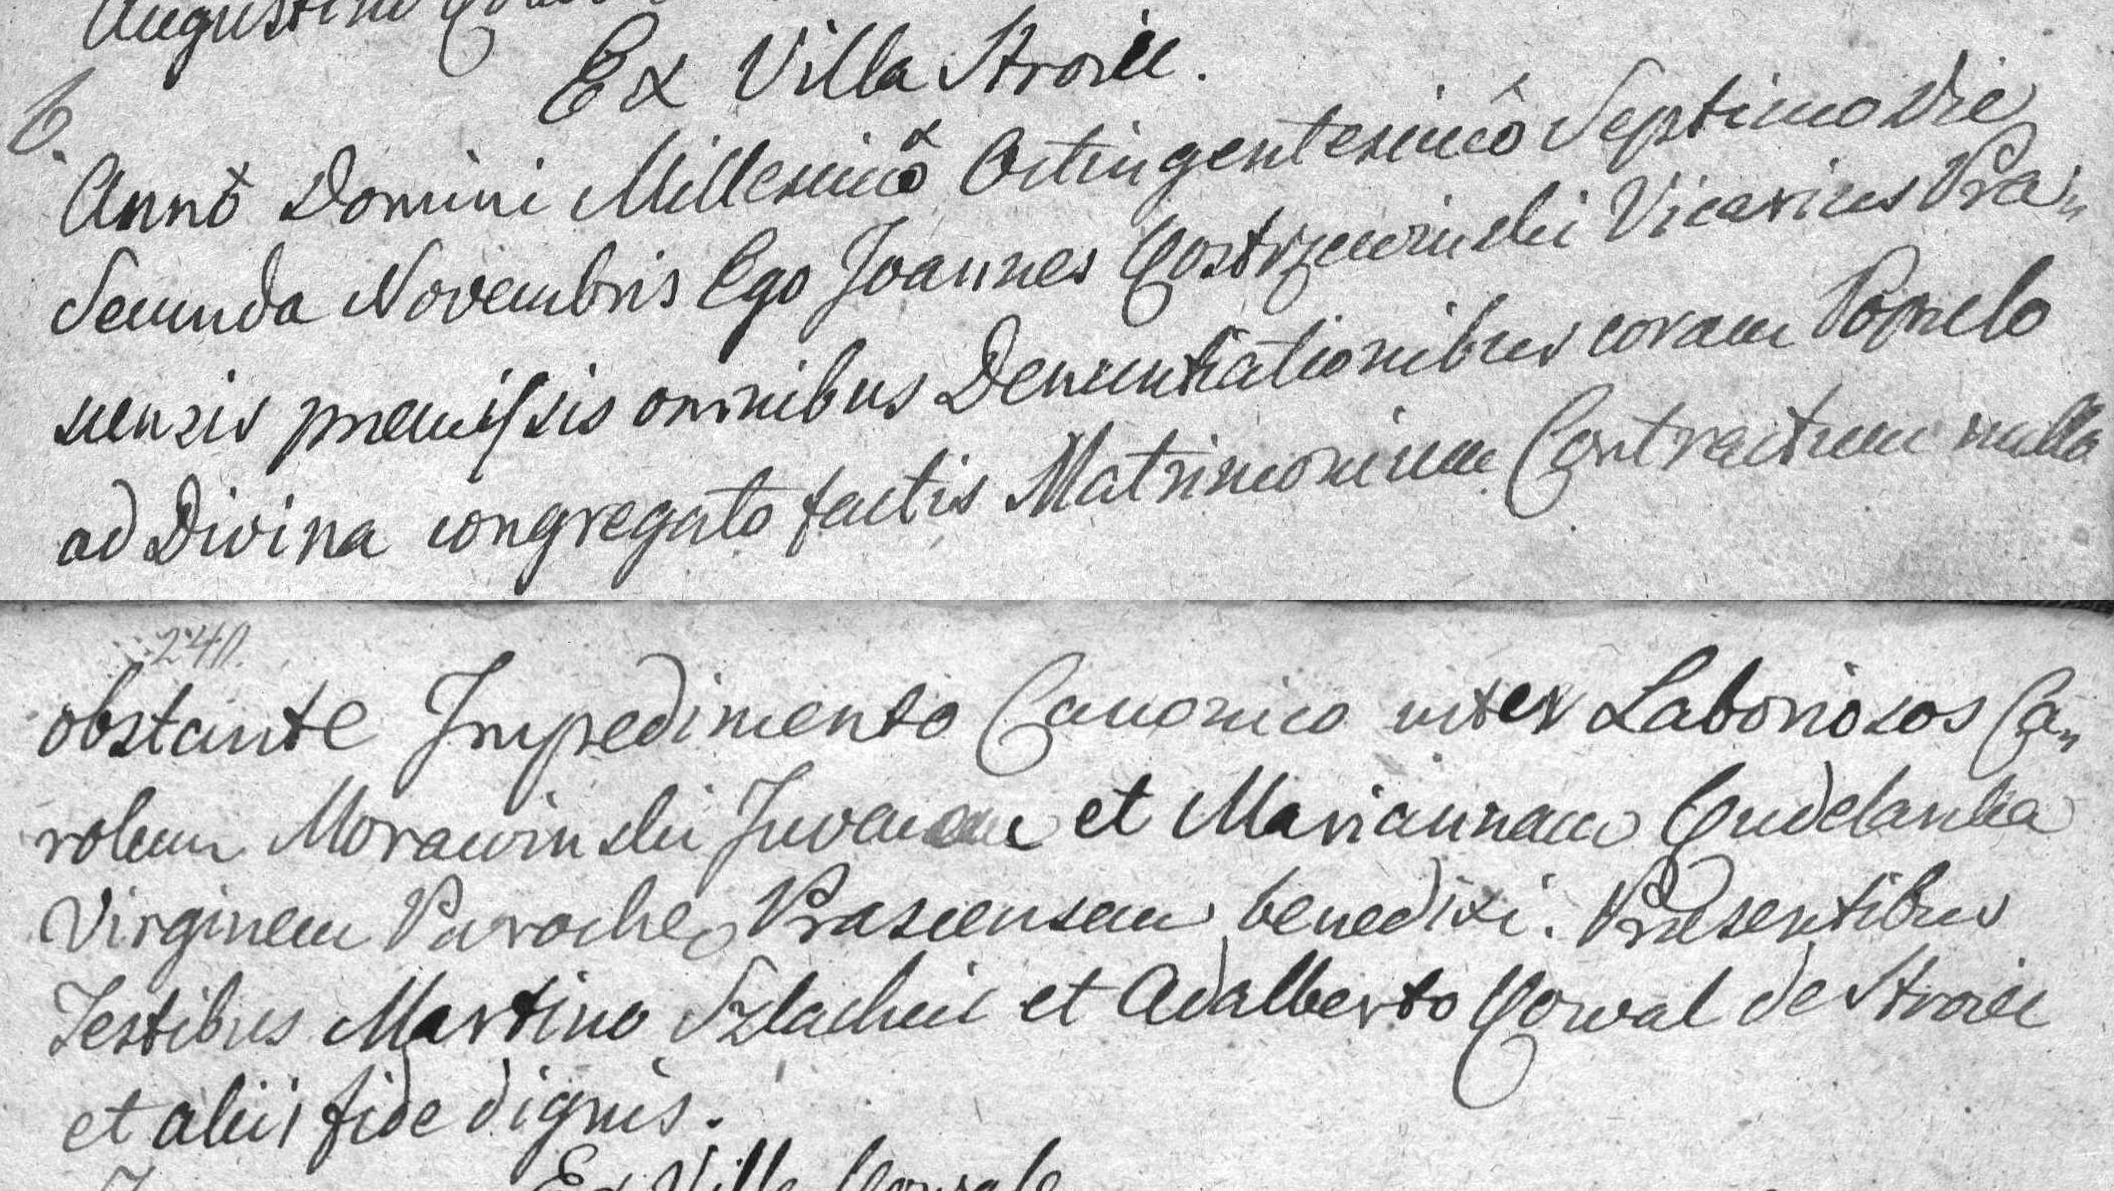 Augustini
Ex Villa Stroiec.
6.
Anno Domini Millesimo Octingentesimo Septimo Die
Secunda Novembris Ego Joannes Gostrzewinski Vicarius Pra„
snensis premissis omnibus Denuntiationibus coram Populo
ad Divina congregato factis Matrimonium Contractum nullo
240.
obstante Impedimento Canonico inter Laboriosos Ca„
rolum Morawinski Juvenem et Mariannam Gudelanka
Virginem Parochæ Prasnensem benedixi. Præsentibus
Testibus Martino Szlachcic et Adalberto Gowal de Stroiec
et aliis fide dignis.
Ex Villa